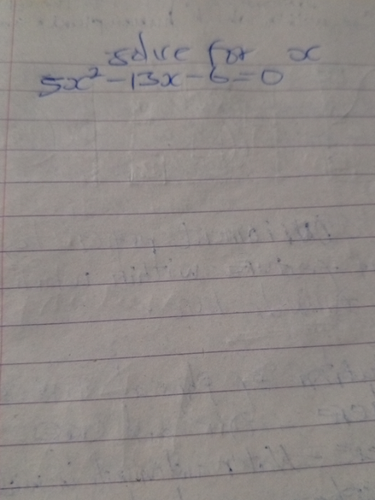 solve for x
5x² - 13x - 6 = 0